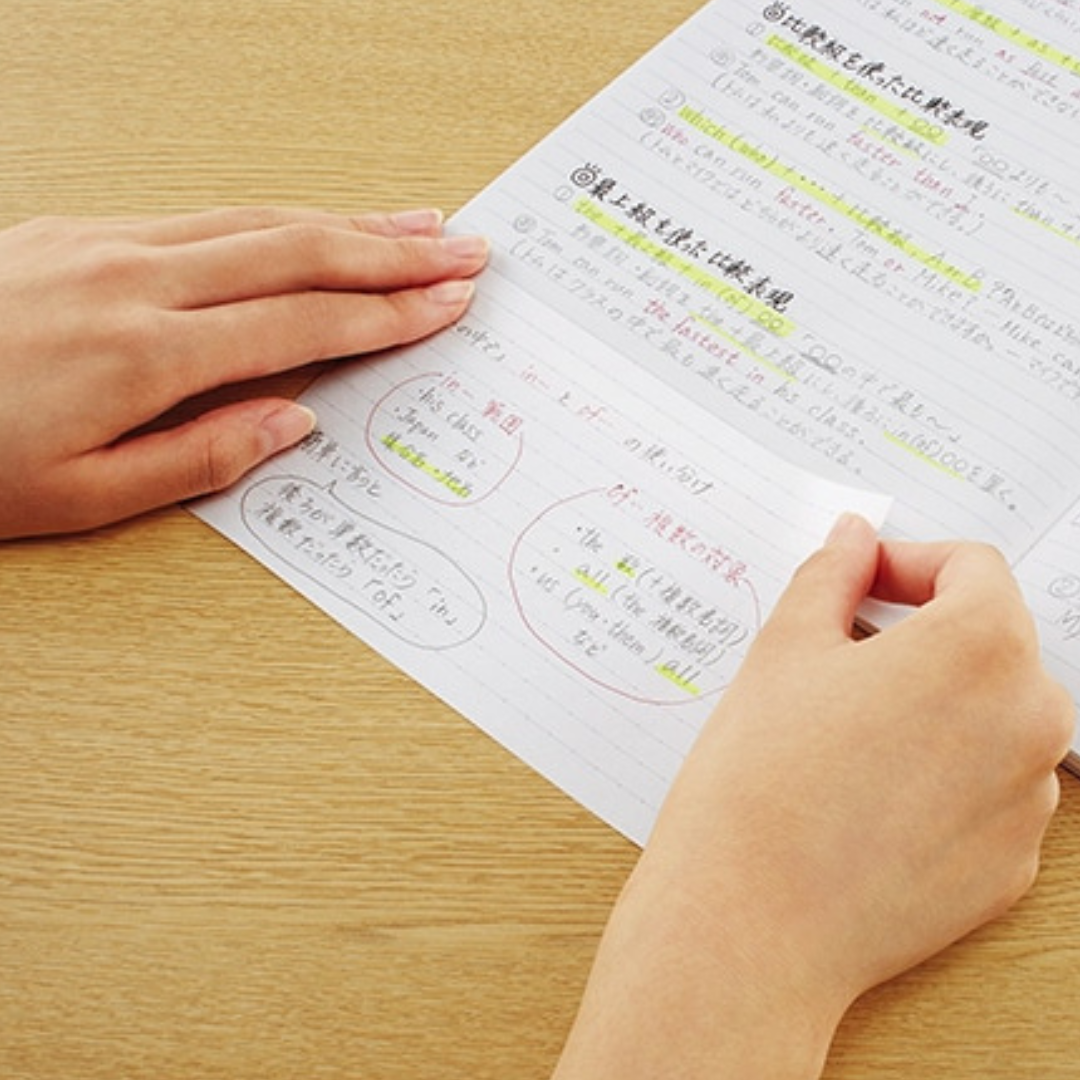 not run as fast as
◎比較級を使った比較表現
① 比較級 + than + ○○ 「○○よりも〜
形容詞・副詞を比較級にし、後ろに than
例 Tom can run faster than I.
(トムは私よりも速く走ることができる。)
② Which (Who) + … + 比較級, A or B
例 Who can run faster, Tom or Mike? - Mike can
(トムとマイクではどちらがより速く走ることができますか。
◎最上級を使った比較表現
① the + 最上級 + in (of) ○○ 「○○の中で最も〜」
形容詞・副詞を the + 最上級にし、後ろに in (of) ○○を置く。
例 Tom can run the fastest in his class.
(トムはクラスの中で最も速く走ることができる。)
の中で」 in… と of… の使い分け
in… 範囲
・his class
・Japan など
簡単に言うと
後ろが単数だったら「in」
複数だったら「of」
of… 複数の対象
・the 数 (+複数名詞)
・all (the 複数名詞)
・us (you・them) all
など